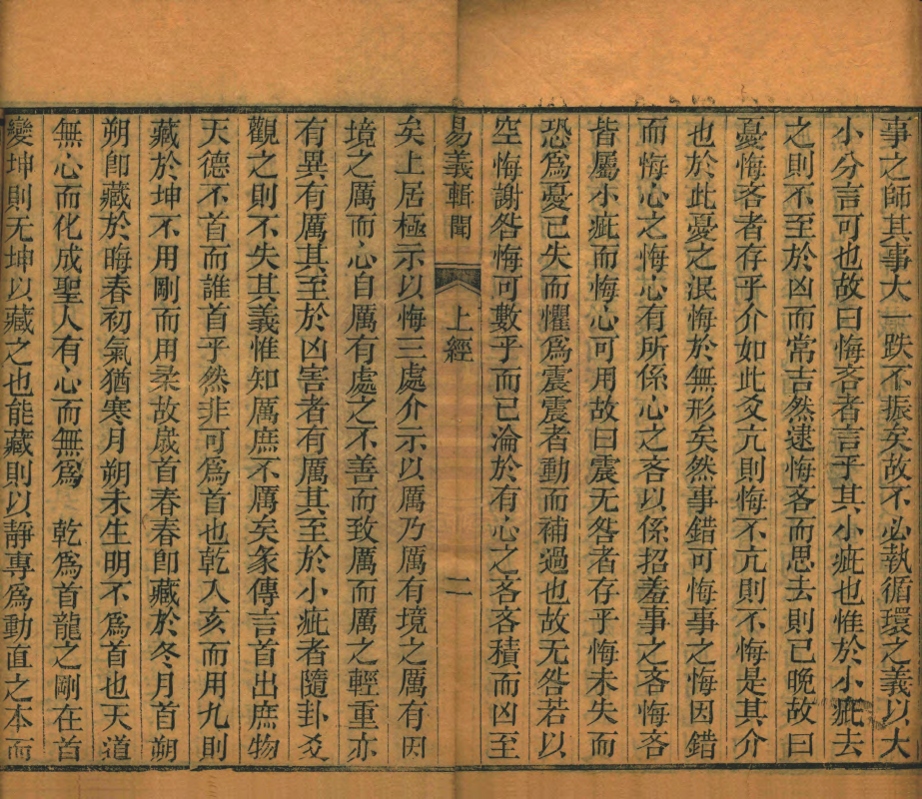 事之師其事大一跌不振矣故不必執循環之義以大
小分言可也故曰悔吝者言乎其小疵也惟於小疵去
之則不至於凶而常吉然逮悔吝而思去則已晚故曰
憂悔吝者存乎介如此爻亢則悔不亢則不悔是其介
也於此憂之泯悔於無形矣然事錯可悔事之悔因錯
而悔心之悔心有所係心之吝以係招羞事之吝悔吝
皆屬小疵而悔心可用故曰震无咎者存乎悔未失而
恐為憂已失而懼為震震者動而補過也故无咎若以
空悔謝咎悔可數乎而已淪於有心之吝吝積而凶至
易義輯聞 上經 二
矣上居極示以悔三處介示以厲乃厲有境之厲有因
境之厲而心自厲有處之不善而致厲而厲之輕重亦
有異有厲其至於凶害者有厲其至於小疵者隨卦爻
觀之則不失其義惟知厲庶不厲矣彖傳言首出庶物
天德不首而誰首乎然非可為首也乾入亥而用九則
藏於坤不用剛而用柔故歲首春春卽藏於冬月首朔
朔卽藏於晦春初氣猶寒月朔未生明不為首也天道
無心而化成聖人有心而無為 乾為首龍之剛在首
變坤則无坤以藏之也能藏則以靜專為動直之本而